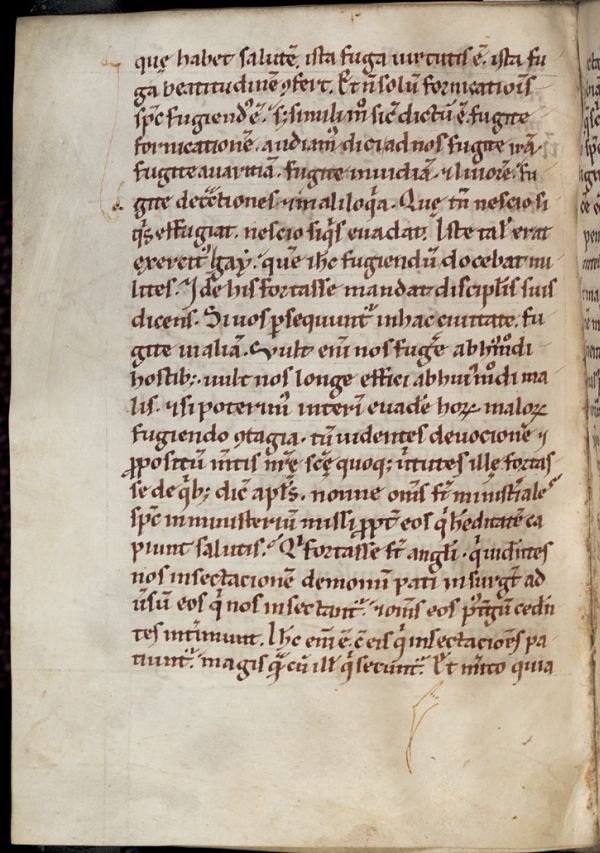 quę habet salutē. ista fuga uirtutis ē. ista fu
ga beatitudinē ꝯfert. Et ñ solū fornicatiōīs
spc̄ fugiendꝰ ē. sꝫ simili m̊ sic̄ dictū ē. fugite
fornicationē. audiam᷒ dici ad nos fugite irā.
fugite auaritiā. fugite inuidiā. ⁊ liuorē. fu
gite detͣctiones ⁊ maliloq̄a. Quę tn̄ nescio si
q̇s effugiat. nescio si q̇s euadat. Iste tal᷒ erat
exercitꝰ gay. quē ihc fugiendū docebat mi
lites. I de his fortasse mandat disciplīs suis
dicens. Si uos ꝑsequunt᷑ in hac ciuitate. fu
gite in aliā. Vult eni᷒ nos fug̾e ab hm̊di
hostibꝫ. uult nos longe effici ab hui᷒m̊di ma
lis. ⁊ si poterim᷒ interī euad̾e hoꝝ maloꝝ
fugiendo ꝯtagia. tū uidentes deuocionē ⁊
ꝓpositū m̄tis nr̄ę sc̄ę quoqꝫ uirtutes illę fortas
se de q̇bꝫ dic̄ apl̄s. nonne om̄s st̄ ministͥales
spc̄ in ministeriū missi ꝓpt̄ eos q̇ h̾editatē ca
piunt salutis. Qͥ fortasse st̄ angl̄i. q̇ uidn̄tes
nos insectacionē demonū pati insurgt̄ ad
ūsū eos q̇ nos insectant᷑. ⁊ om̄s eos ꝓt̾gū cedn̄
tes int̾imunt. Ihc eni᷒ ē c̄ eis q̇ insectaciōes pa
tiunt᷑. magis qͣ cū ill᷒ q̇ secunt᷑. Et m̾ito quia